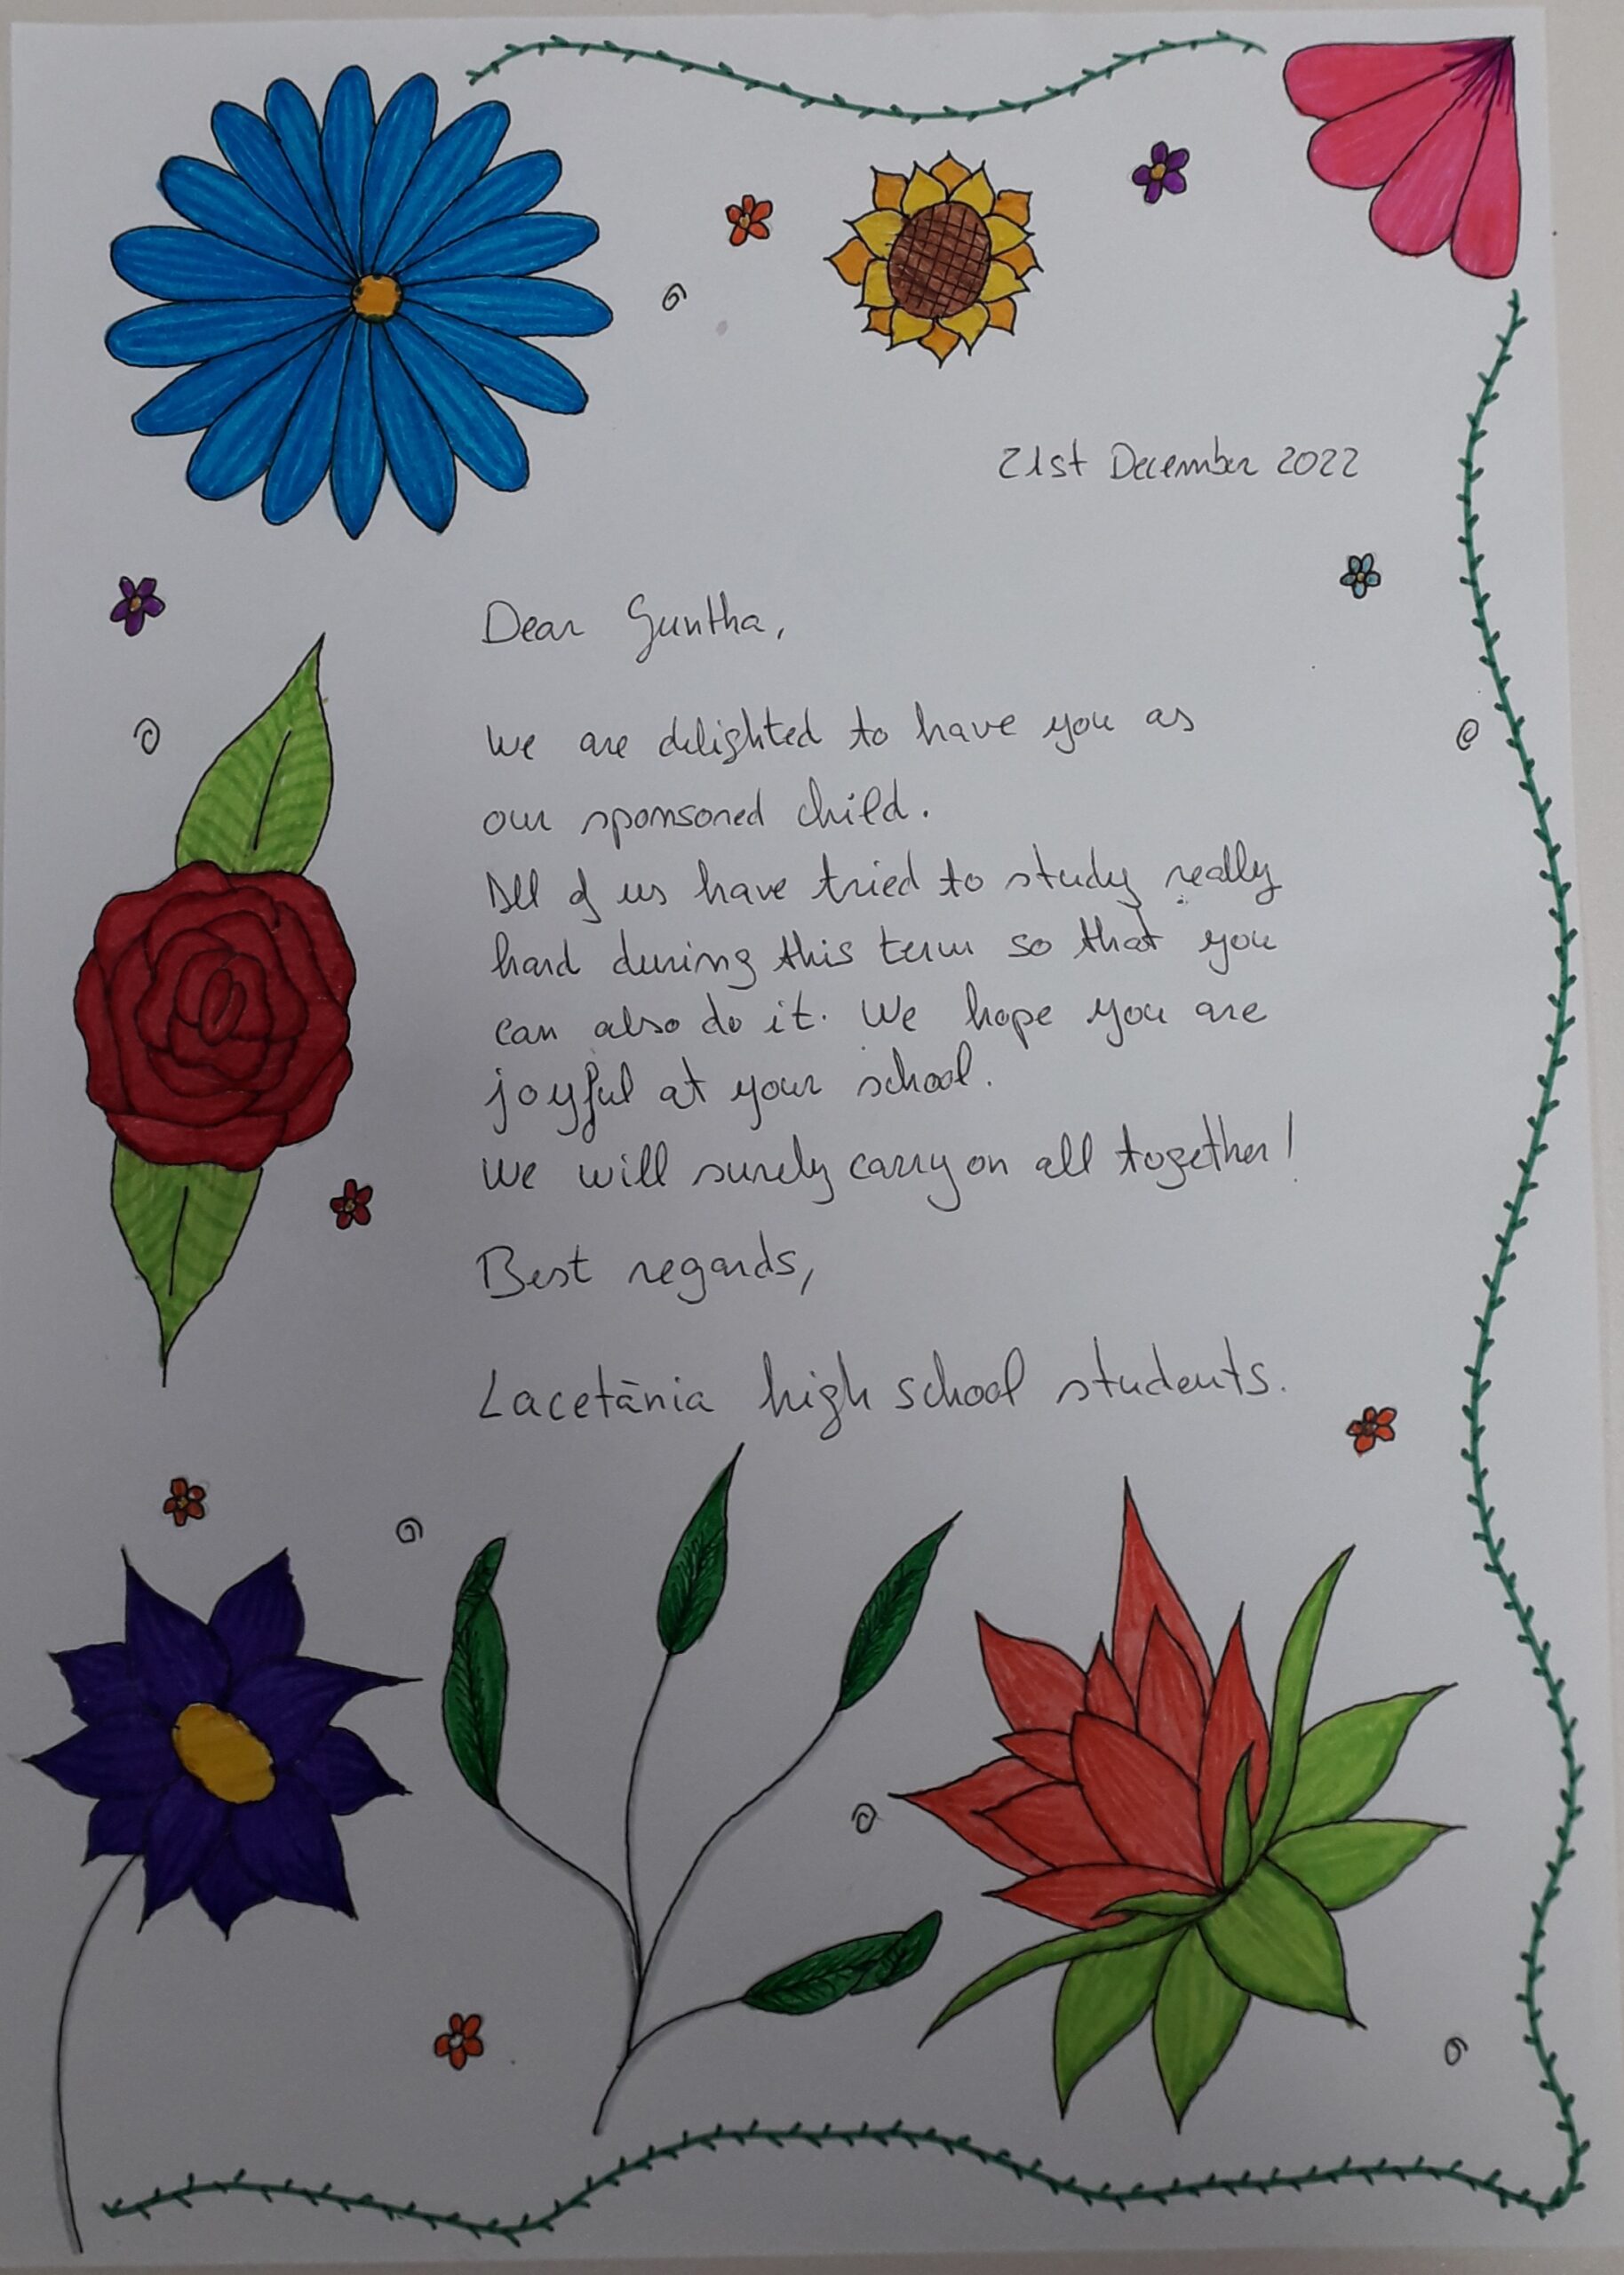 21st December 2022
Dear Guntha,
We are delighted to have you as
our sponsored child.
All of us have tried to study really
hard during this term so that you
can also do it. We hope you are
joyful at your school.
We will surely carry on all together!
Best regards,
Lacetània high school students.